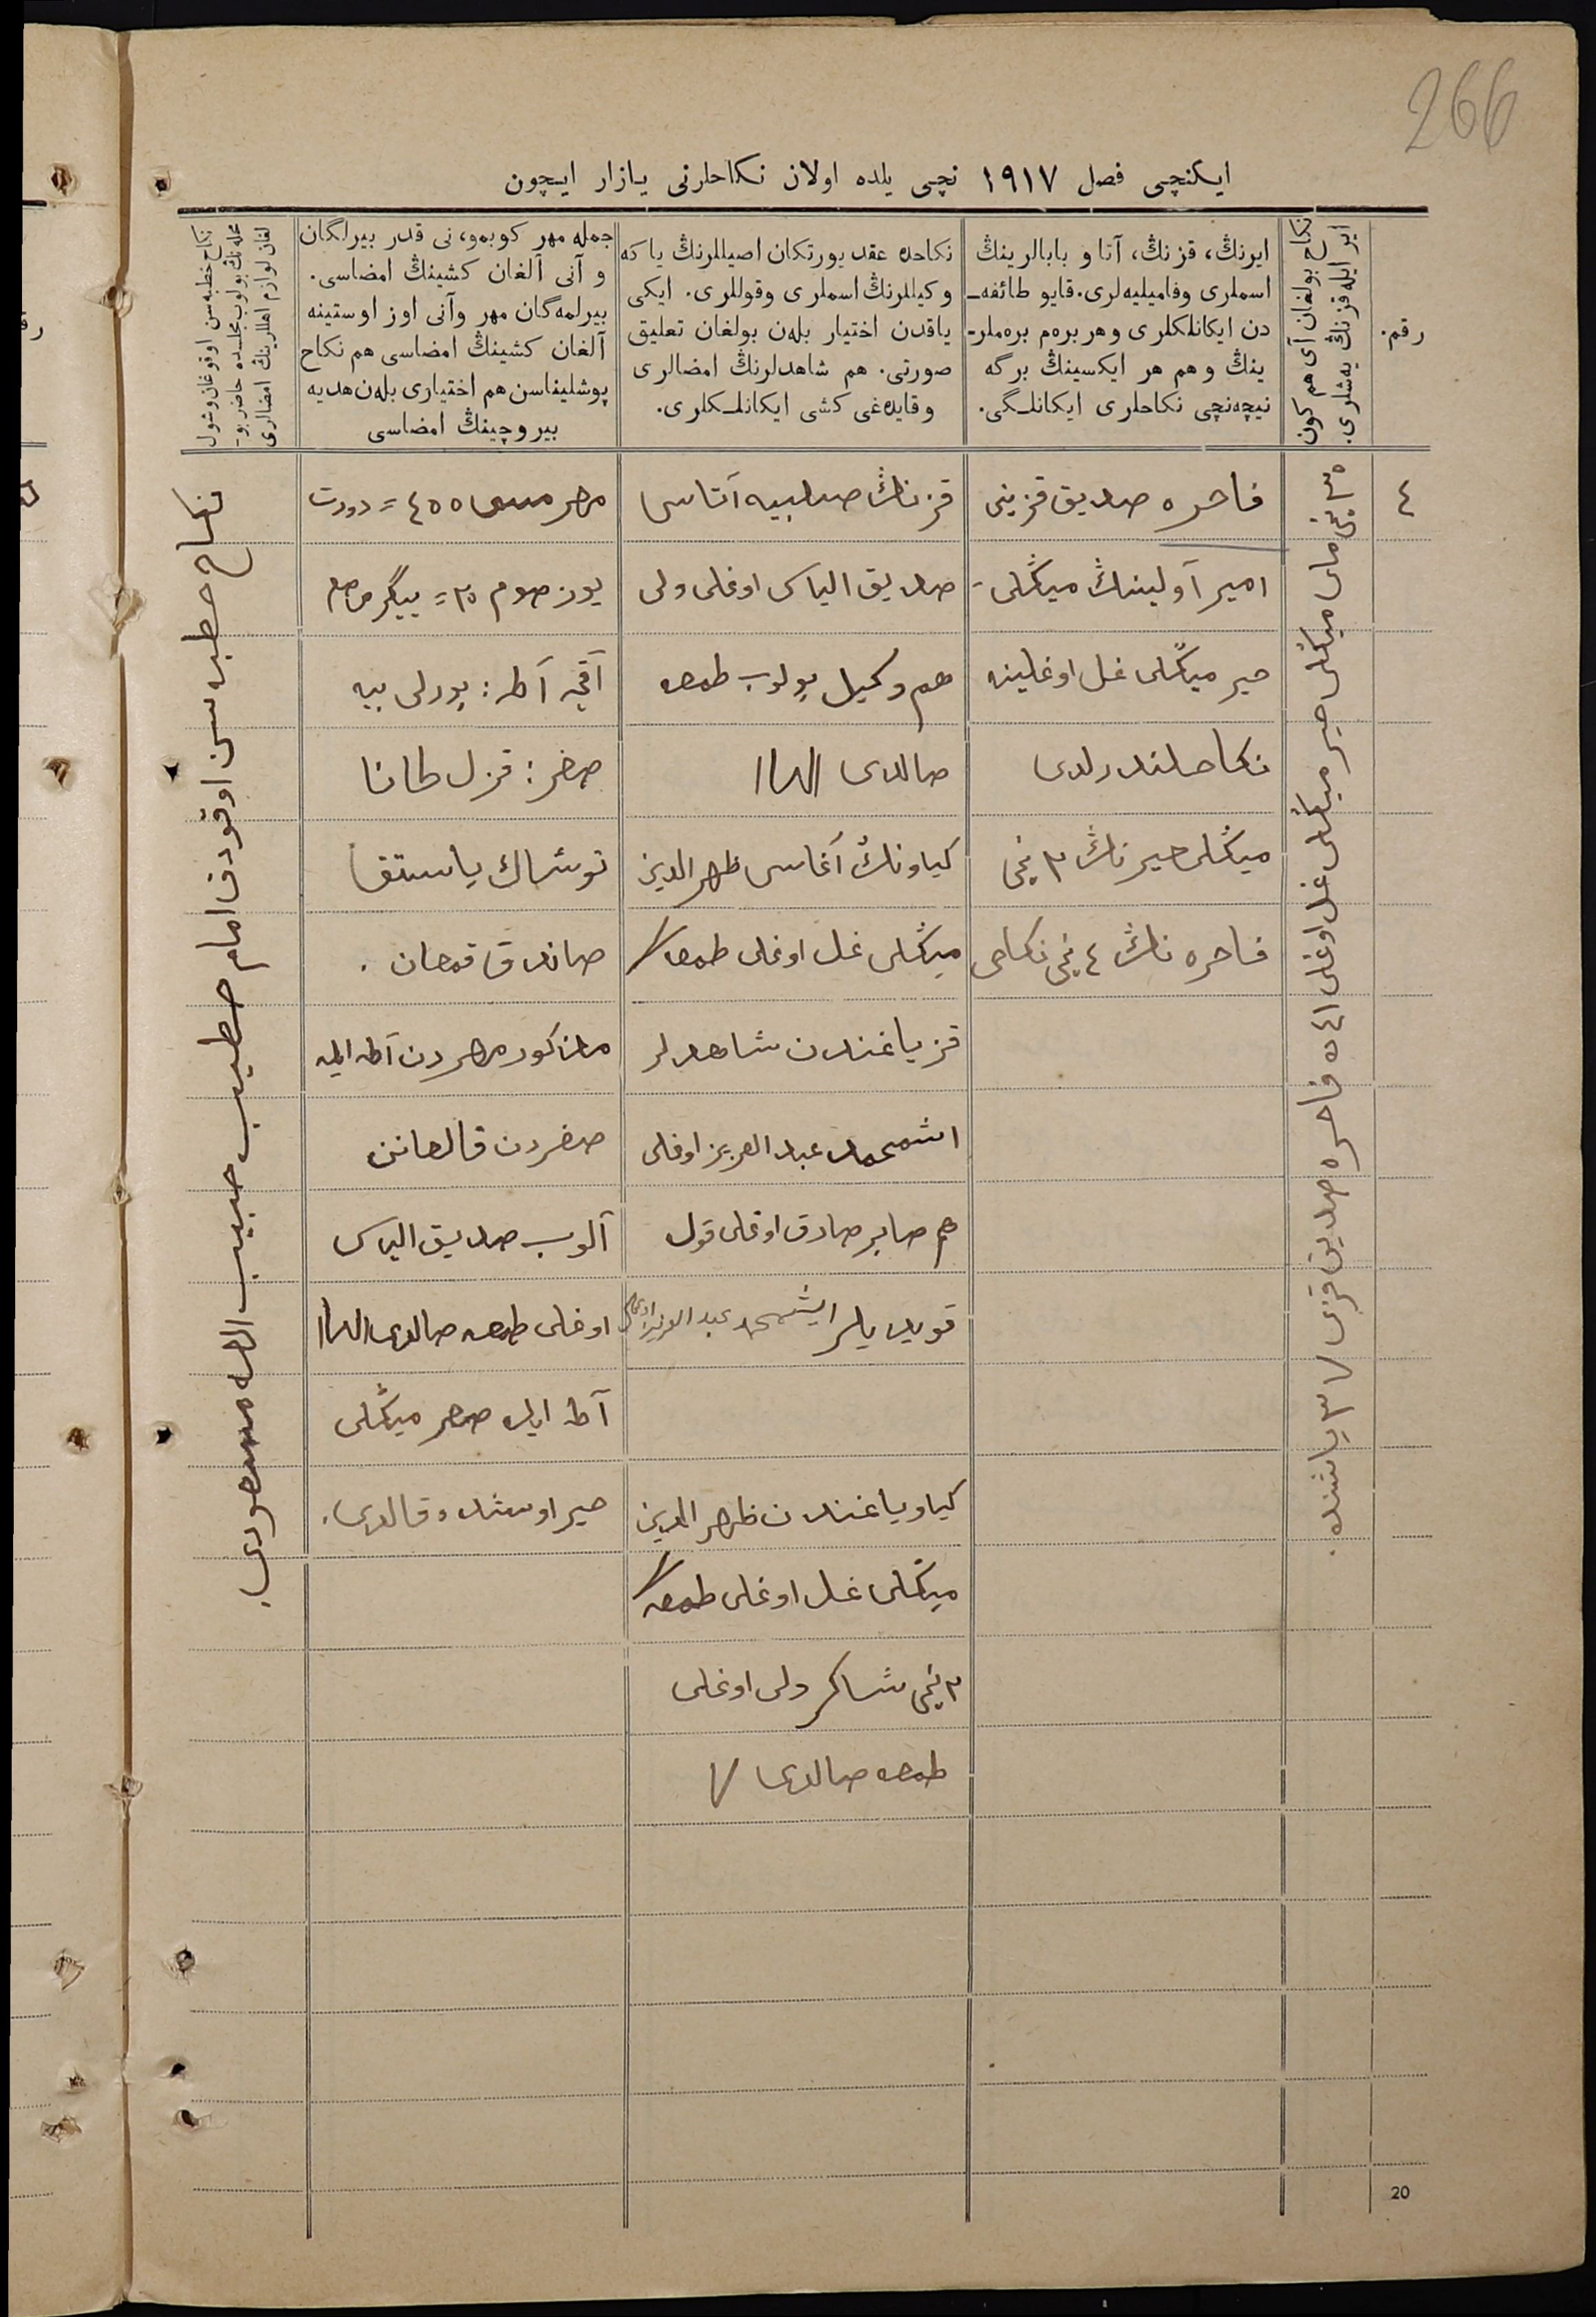 266
ایکنچی فصل ١٩١٧ نچی یلده اولان نکاحلرنی یازار ایچون
رقم.
نکاح بولغان آی هم کون
ایر ایله قزنڭ یه‌شلری.
ایرنڭ، قزنڭ، آتا و بابالرینڭ
اسملری وفامیلیه‌لری. قایو طائفه‌ـ
دن ایکانلکلری و هر بره‌م بره‌ملرـ
ینڭ و هم هر ایکسینڭ برگه
نیچه‌نچی نکاحلری ایکانلـگی.
نکاحده عقد یورتکان اصیللرنڭ یا که
وکیللرنڭ اسملری وقوللری. ایکی
یاقدن اختیار بلەن بولغان تعلیق
صورتی. هم شاهدلرنڭ امضالری
وقایده‌غی کشی ایکانلـکلری.
جمله مهر کوبمو، نی قدر بیرلگان
و آنی آلغان کشینڭ امضاسی.
بیرلمه‌گان مهر وآنی اوز اوستینه
آلغان کشینڭ امضاسی هم نکاح
پوشلیناسن هم اختیاری بلەن هدیه
بیروچینڭ امضاسی
نکاح خطبه‌سن اوقوغان وشول
محله‌نڭ بولوب مجلسده حاضر بوـ
لغان لوازم اهللرینڭ امضالری
٤
میڭلی خیر میڭلی غل اوغلی ٤١ ده فاخره صدیق قزی ٣٧ یاشنده.
فاخره صدیق قزینی
امیر آولیننڭ میڭلی-
خیر میڭلی غل اوغلینه
نکاحلندرلدی
میڭلی خیرنڭ ٢ نچی
فاخره نڭ ٤ نچی نکاحی
قزنڭ صلبیه آتاسی
صدیق الیاس اوغلی ولی
هم وکیل بولوب طمغه
صالدی
کیاونڭ آغاسی ظهرالدین
میڭلی غل اوغلی طمغه
قز یاغندن شاهدلر
اشمحمد عبدالعزیز اوغلی
هم صابر صادق اوغلی قول
قویدیلر اشمحمد عبدالعزیز اوغلی
کیاو یاغندن ظهرالدین
میڭلی غل اوغلی طمغه
٢ نچی شاکر ولی اوغلی
طمغه صالدی
مهر مسمی ٤٥٥ = دورت
یوز صوم ٣٥ = بیگرمه صم
آقچه آطه: یورلی بیه
صغر: قزل طانا
توشاك یاستق
صاندق قمغان.
مذکور مهردن آطه ایله
صغردن قالغانن
آلوب صدیق الیاس
اوغلی طمغه صالدی
آطه ایله صغر میڭلی
خیر اوستنده قالدی.
نکاح خطبه سن اوقودق امام خطیب حبیب الله منصوری.
20